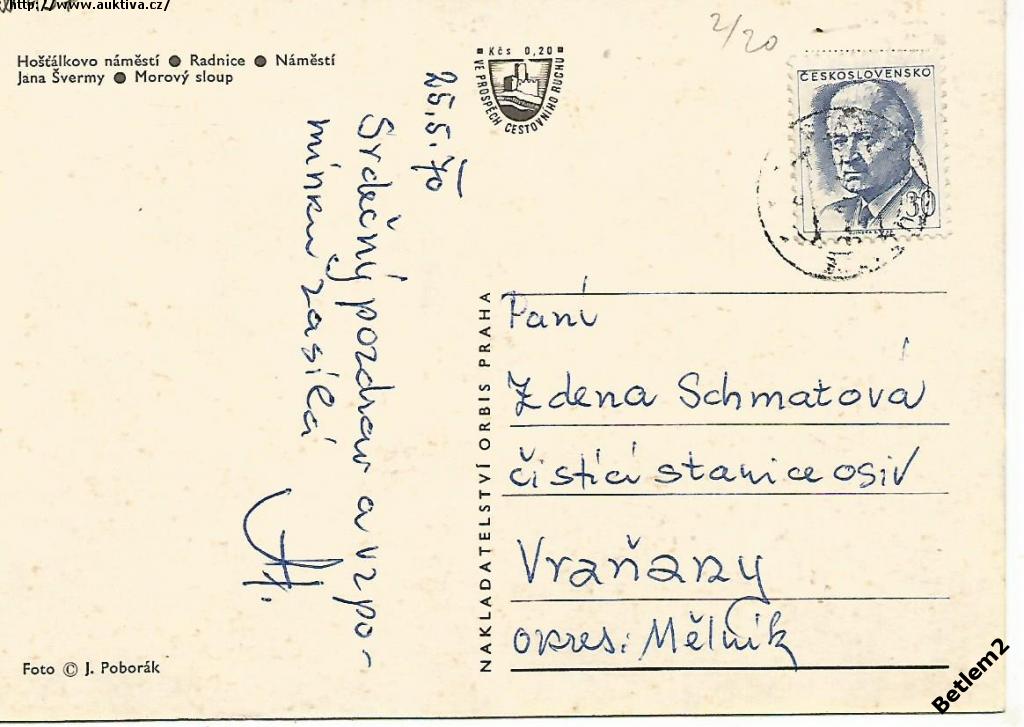 http://www.auktiva.cz/
Hošťálkovo náměstí ● Radnice ● Náměstí
Jana Švermy ● Morový sloup
2/20
Kčs 0,20
VE PROSPĚCH CESTOVNÍHO RUCHU
ČESKOSLOVENSKO
30
25.5.70
Srdečný pozdrav a vzpo-
mínku zasílá
NAKLADATELSTVÍ ORBIS PRAHA
Paní
Zdena Schmatová
čistící stanice osiv
Vraňany
okres: Mělník
Foto © J. Poborák
Betlem2